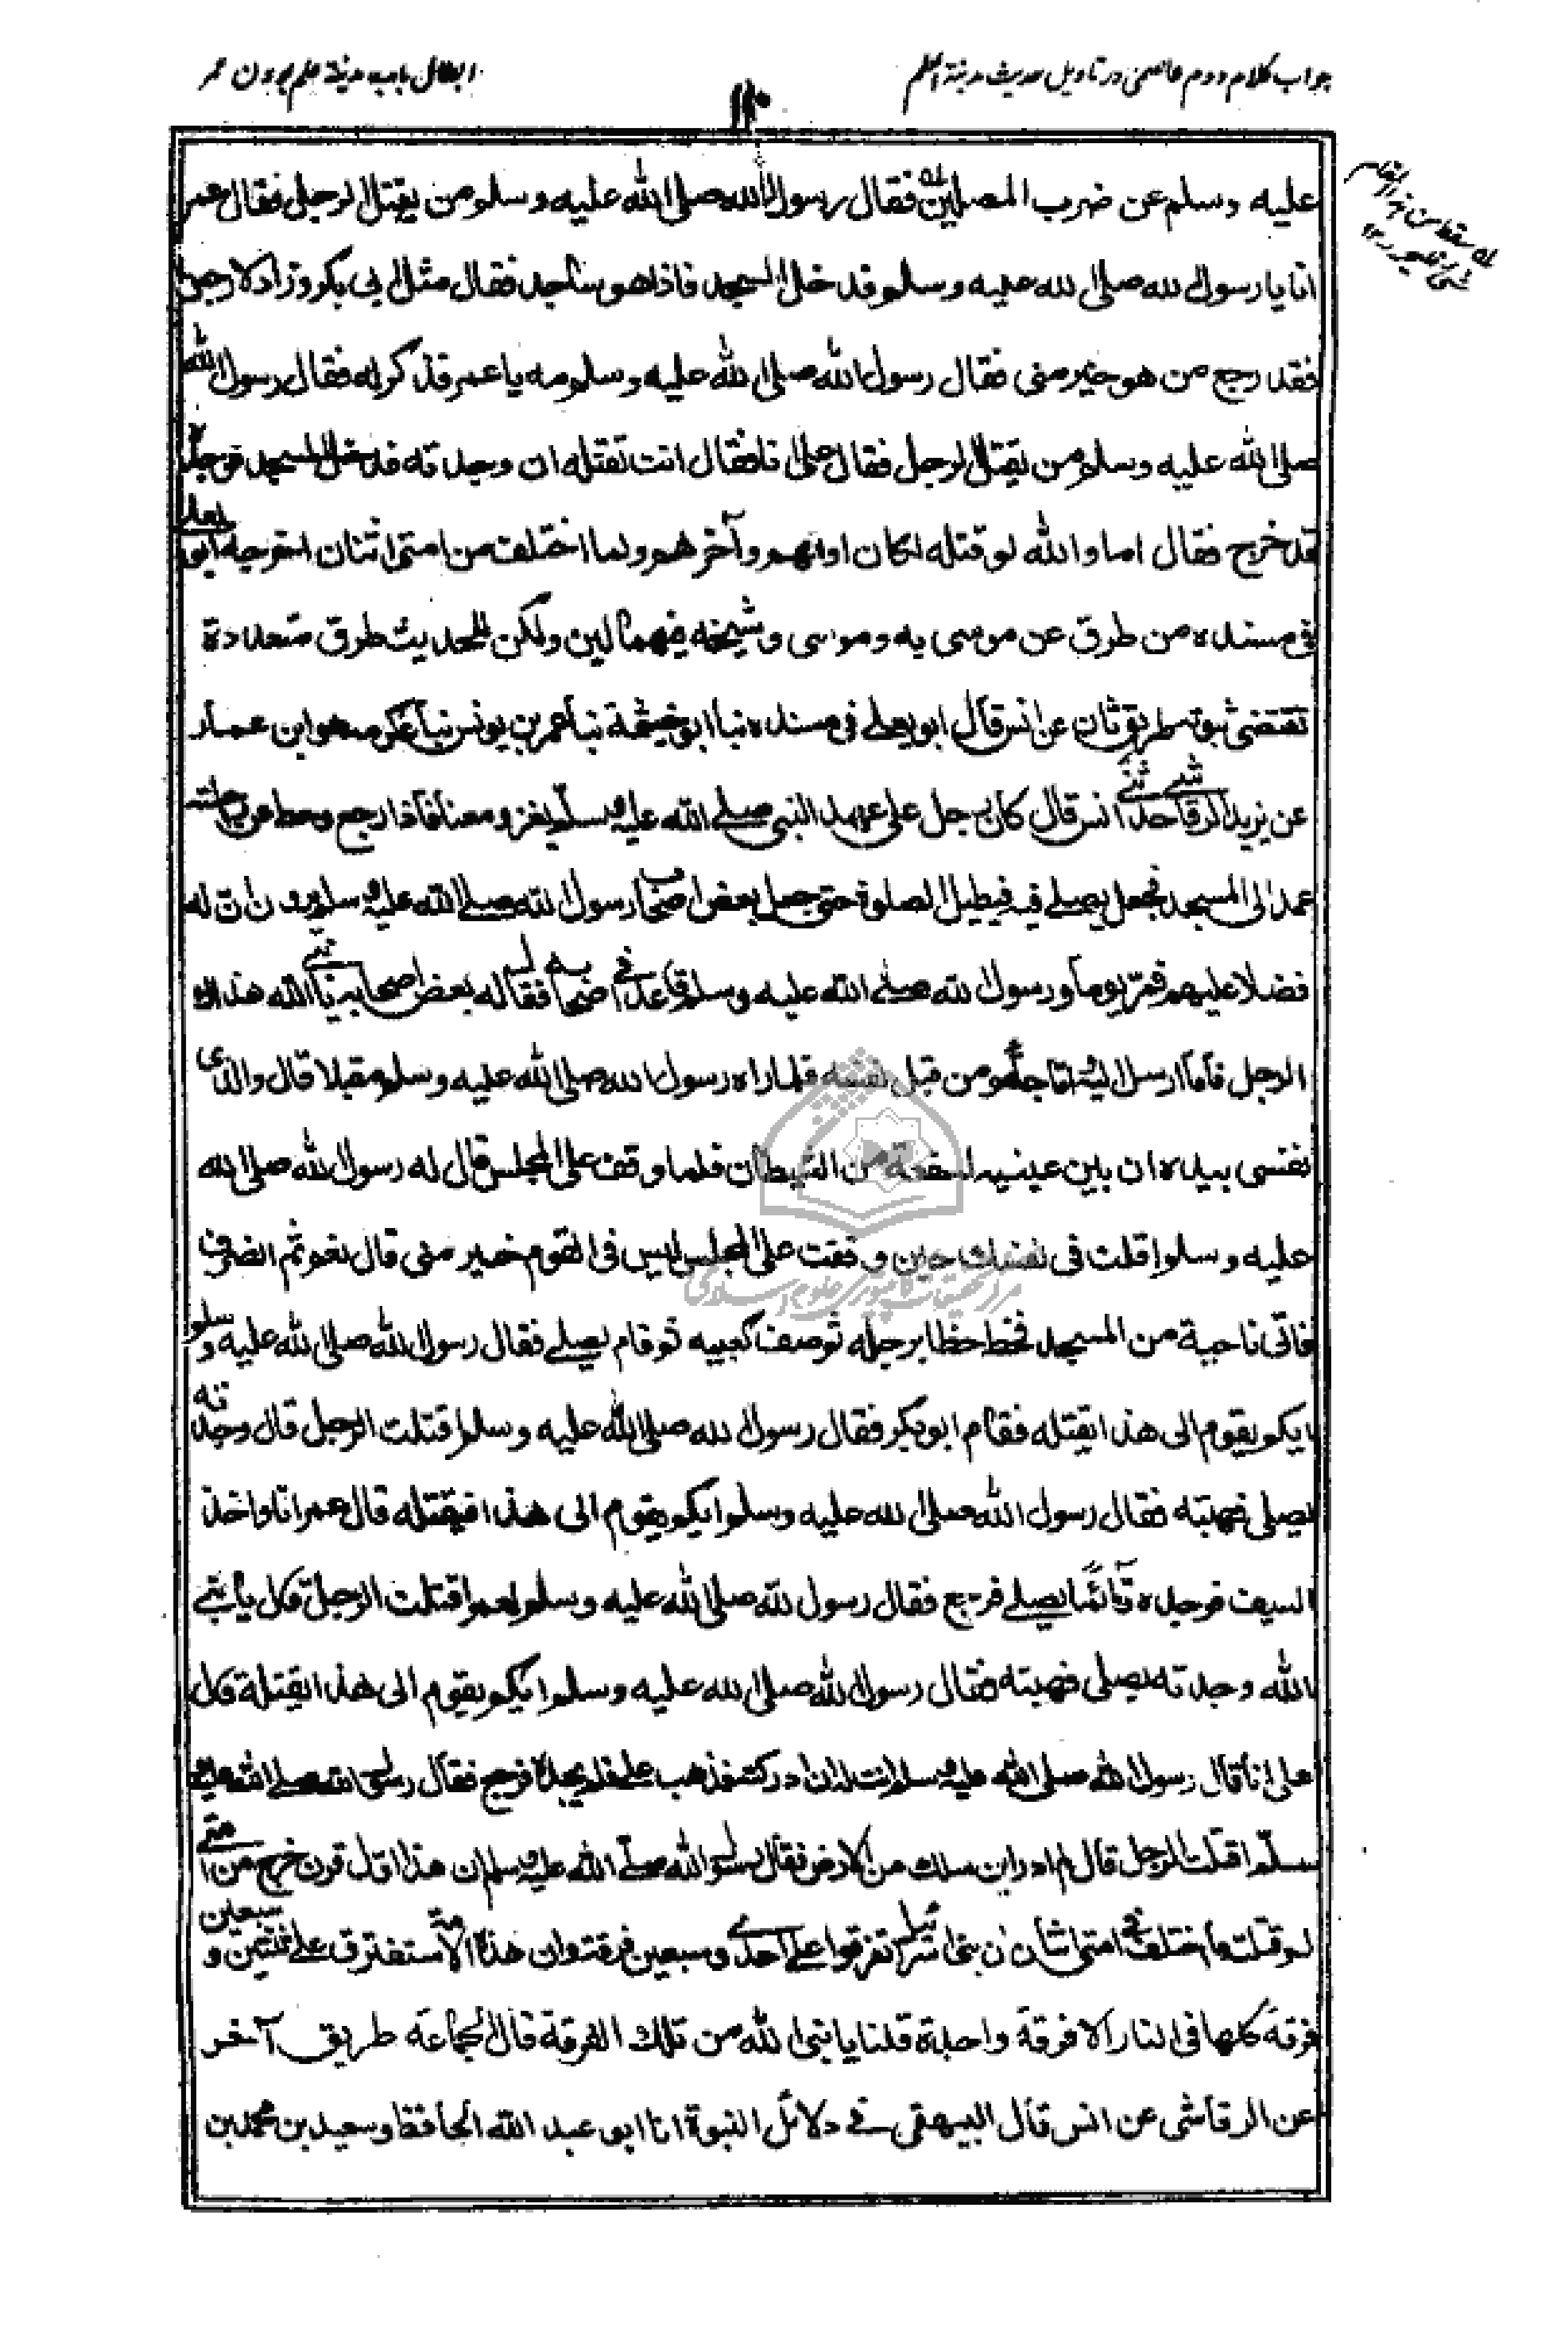 جواب کلام دوم عاصمی در تاویل حدیث مدینة العلم
ابطال باب مدینة علم بودن عمر
١١٠
علیه وسلم عن ضرب المصلین فقال رسول الله صلی الله علیه وسلم من یقتل الرجل فقال عمر
انا یا رسول الله صلی الله علیه وسلم فدخل المسجد فاذا هو ساجد فقال مثل ابی بکر وزاد لارجعن
فقد رجع من هو خیر منی فقال رسول الله صلی الله علیه وسلم مه یا عمر فذکر له فقال رسول الله
صلی الله علیه وسلم من یقتل الرجل فقال علی انا فقال انت تقتله ان وجدته فدخل المسجد فوجده
قد خرج فقال اما والله لو قتلته لکان اولهم وآخرهم ولما اختلف من امتی اثنان اخرجه ابو یعلی
فی مسنده من طرق عن موسی به وموسی وشیخه فیهما لین ولکن للحدیث طرق متعددة
تقتضی ثبوته طریق ثان عن انس قال ابو یعلی فی مسنده نبا ابو خیثمة نبا عمر بن یونس نبا عکرمه هو ابن عمار
عن یزید الرقاشی حدثنی انس قال کان رجل علی عهد النبی صلی الله علیه وسلم یغزو معنا فاذا رجع وحط عن راحلته
عمد الی المسجد فجعل یصلی فیه فیطیل الصلوة حتی جعل بعض اصحاب رسول الله صلی الله علیه وسلم یرون ان له
فضلا علیهم فمر یوما ورسول الله صلی الله علیه وسلم قاعد فی اصحابه فقال له بعض اصحابه یا نبی الله هذا ذاک
الرجل فاما ارسل الیه اما جاء هو من قبل نفسه فلما راه رسول الله صلی الله علیه وسلم مقبلا قال والذی
نفسی بیده ان بین عینیه لسفعة من الشیطان فلما وقف علی المجلس قال له رسول الله صلی الله
علیه وسلم اقلت فی نفسک حین وقفت علی المجلس لیس فی القوم خیر منی قال نعم ثم انصرف
فاتی ناحیة من المسجد فخط خطا برجله ثم صف کعبیه ثم قام یصلی فقال رسول الله صلی الله علیه وسلم
ایکم یقوم الی هذا یقتله فقام ابو بکر فقال رسول الله صلی الله علیه وسلم اقتلت الرجل قال وجدته
یصلی فهبته فقال رسول الله صلی الله علیه وسلم ایکم یقوم الی هذا فیقتله قال عمر انا واخذ
السیف فوجده قائما یصلی فرجع فقال رسول الله صلی الله علیه وسلم لعمر اقتلت الرجل قال یا نبی
الله وجدته یصلی فهبته فقال رسول الله صلی الله علیه وسلم ایکم یقوم الی هذا یقتله قال
علی انا قال رسول الله صلی الله علیه وسلم انت له ان ادرکته فذهب علی فلم یجده فرجع فقال رسول الله صلی الله علیه
وسلم اقتلت الرجل قال لم ادر این سلک من الارض فقال رسول الله صلی الله علیه وسلم ان هذا اول قرن خرج من امتی
لو قتلته ما اختلف فی امتی اثنان ان بنی اسرائیل تفرقوا علی احدی وسبعین فرقة وان هذه الامة ستفترق علی ثنتین وسبعین
فرقة کلها فی النار الا فرقة واحدة قلنا یا نبی الله من تلک الفرقة قال الجماعة طریق آخر
عن الرقاشی عن انس قال البیهقی فی دلائل النبوة انا ابو عبد الله الحافظ وسعید بن محمد بن